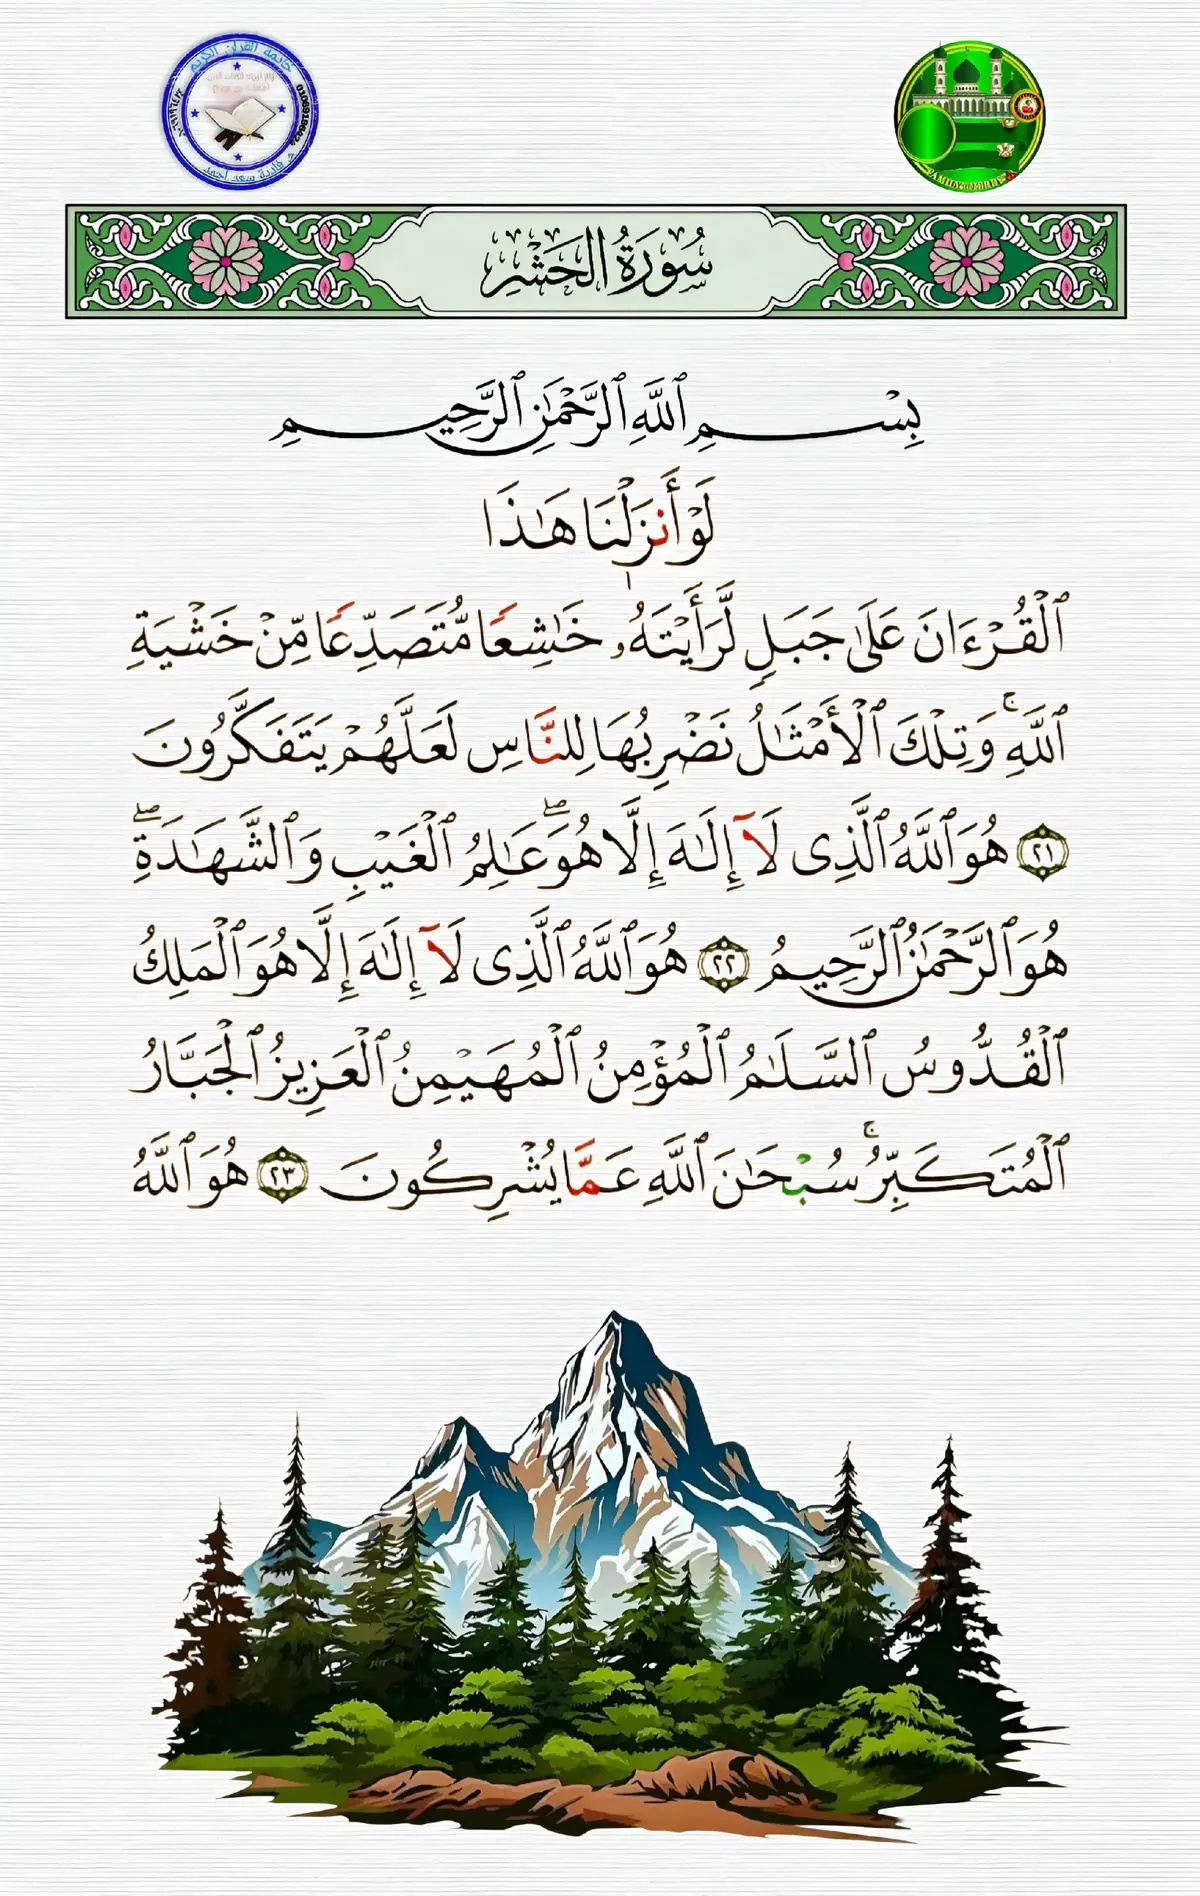 خاتمة القرآن الكريم
د. فادية سعد أحمد
سُورَةُ الحَشْرِ
بِسْمِ ٱللَّهِ ٱلرَّحْمَٰنِ ٱلرَّحِيمِ
لَوْ أَنزَلْنَا هَٰذَا
ٱلْقُرْءَانَ عَلَىٰ جَبَلٍ لَّرَأَيْتَهُۥ خَٰشِعًا مُّتَصَدِّعًا مِّنْ خَشْيَةِ
ٱللَّهِ ۚ وَتِلْكَ ٱلْأَمْثَٰلُ نَضْرِبُهَا لِلنَّاسِ لَعَلَّهُمْ يَتَفَكَّرُونَ
٢١ هُوَ ٱللَّهُ ٱلَّذِى لَآ إِلَٰهَ إِلَّا هُوَ ۖ عَٰلِمُ ٱلْغَيْبِ وَٱلشَّهَٰدَةِ ۖ
هُوَ ٱلرَّحْمَٰنُ ٱلرَّحِيمُ ٢٢ هُوَ ٱللَّهُ ٱلَّذِى لَآ إِلَٰهَ إِلَّا هُوَ ٱلْمَلِكُ
ٱلْقُدُّوسُ ٱلسَّلَٰمُ ٱلْمُؤْمِنُ ٱلْمُهَيْمِنُ ٱلْعَزِيزُ ٱلْجَبَّارُ
ٱلْمُتَكَبِّرُ ۚ سُبْحَٰنَ ٱللَّهِ عَمَّا يُشْرِكُونَ ٢٣ هُوَ ٱللَّهُ